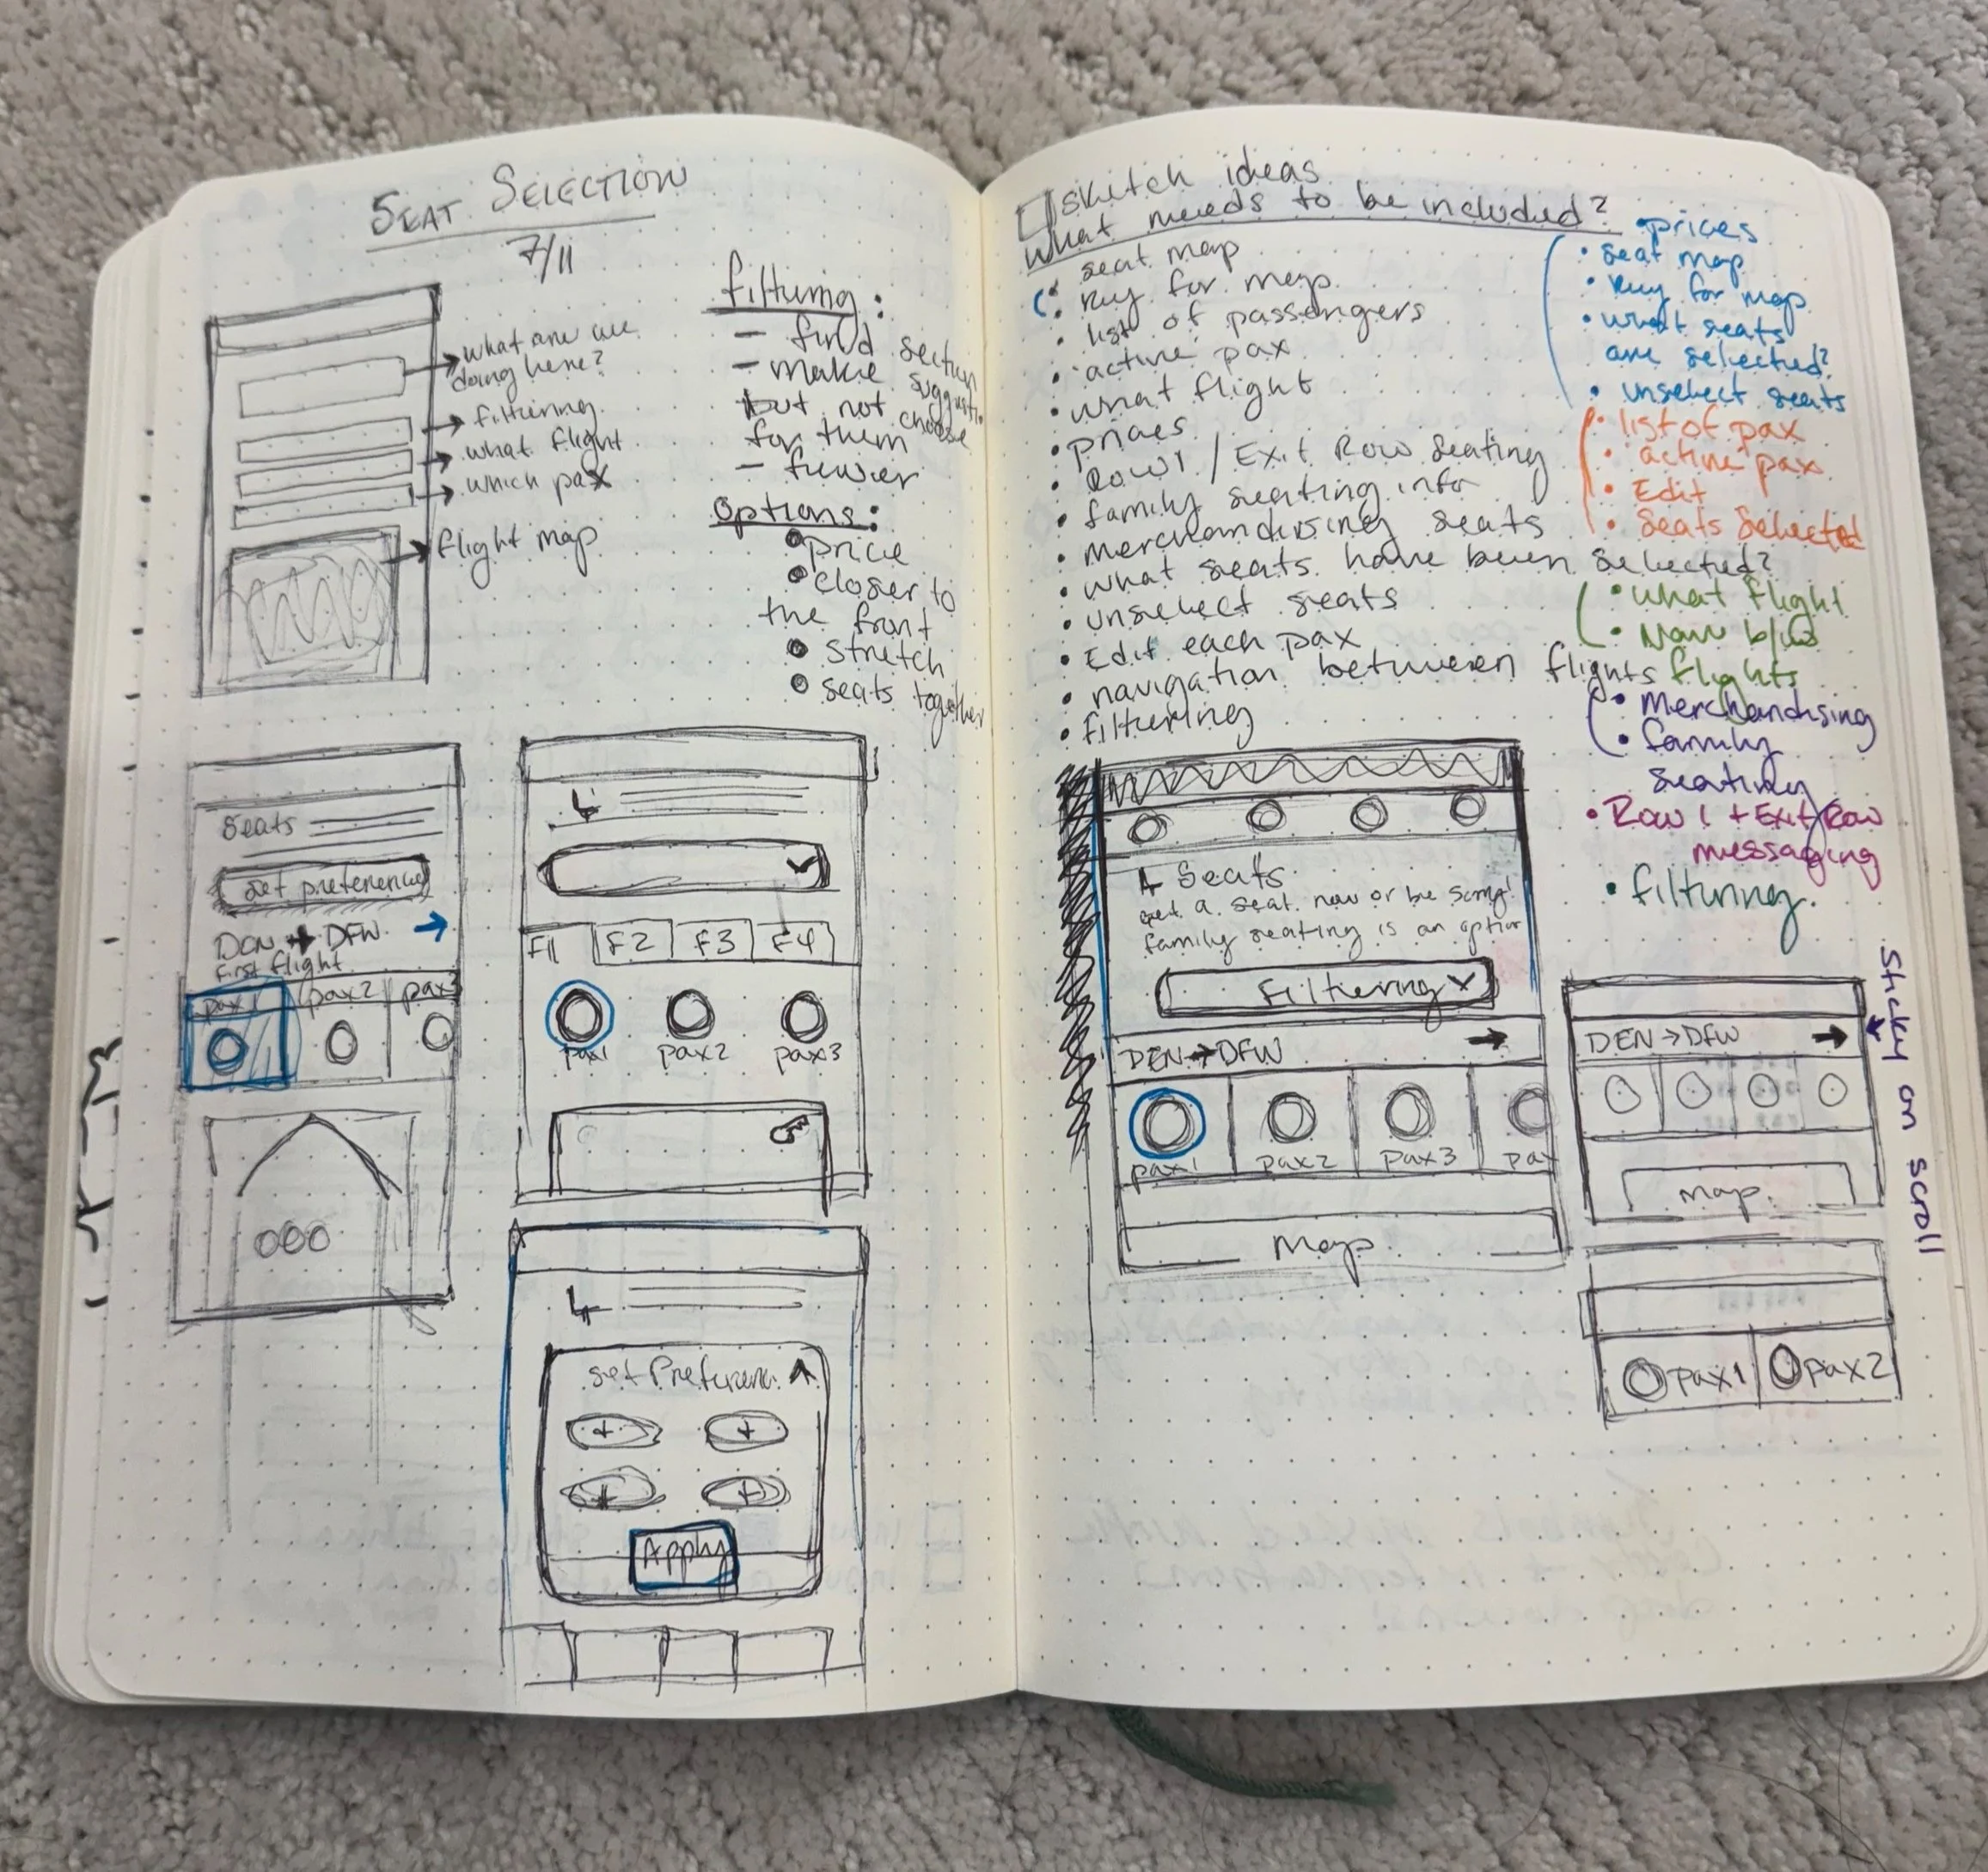 SEAT SELECTION
7/11
what are we
doing here?
filtering
what flight
which pax
flight map
filtering:
- find section
- make suggestio
but not choose
for them
- fewer
Options:
• price
• closer to
the front
• stretch
• seats together
Seats
set preference
DEN → DFW →
First flight
pax 1
pax2
pax3
F1
F2
F3
F4
pax1
pax2
pax3
set Preferenc
+
+
+
+
Apply
sketch ideas
what needs to be included?
• seat map
• key for map
• list of passengers
• active pax
• what flight
• prices
• Row 1 / Exit Row Seating
• family seating info
• merchandising seats
• what seats have been selected?
• unselect seats
• Edit each pax
• navigation between flights
• filtering
• prices
• seat map
• key for map
• what seats
are selected?
• unselect seats
• list of pax
• active pax
• Edit
• Seats Selected
• what flight
• Nav b/w
flights
• Merchandising
• family
seating
• Row 1 + Exit Row
messaging
• filtering.
Seats
get a seat now or be sorry!
family seating is an option
Filtering
DEN → DFW →
pax1
pax2
pax3
pax
Map
DEN → DFW →
map
Sticky on scroll
pax1
pax2